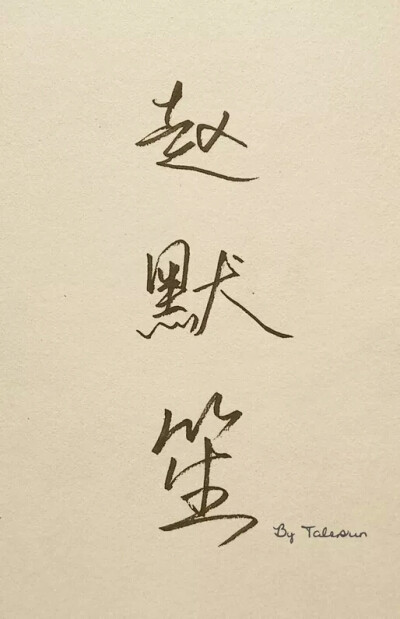 赵
默
笙
By Talensun